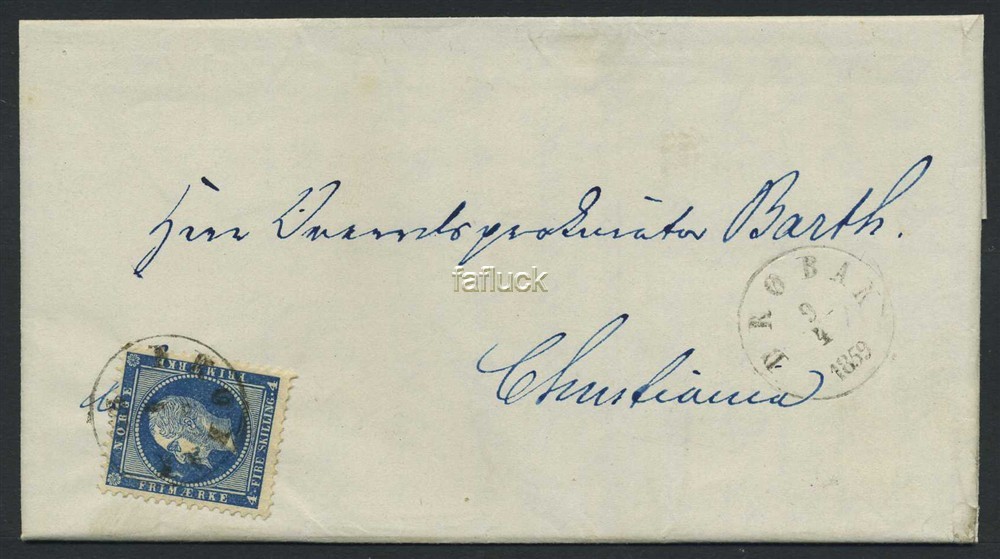 Herr Overretsprokurator Barth.
fafluck
DRØBAK
9
4
1859
Christiania
NORGE
FRIMÆRKE
4 FIRE SKILLING. 4
FRIMÆRKE